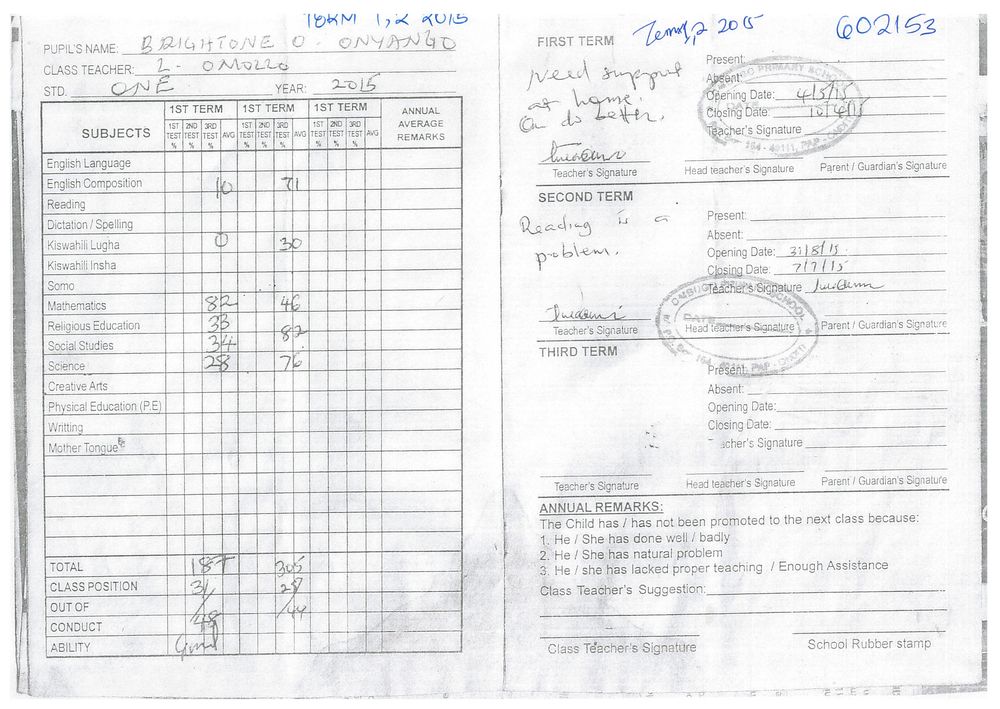 TERM 1,2 2015
PUPIL'S NAME: BRIGHTONE O. ONYANGO
CLASS TEACHER: L. OMOLLO
STD. ONE YEAR: 2015
SUBJECTS 1ST TERM 1ST TERM 1ST TERM ANNUAL AVERAGE REMARKS
1ST TEST % 2ND TEST % 3RD TEST % AVG 1ST TEST % 2ND TEST % 3RD TEST % AVG 1ST TEST % 2ND TEST % 3RD TEST % AVG
English Language
English Composition 10 71
Reading
Dictation / Spelling
Kiswahili Lugha 0 30
Kiswahili Insha
Somo
Mathematics 82 46
Religious Education 33
Social Studies 34 82
Science 28 76
Creative Arts
Physical Education (P.E)
Writting
Mother Tongue
TOTAL 187 305
CLASS POSITION 31 27
OUT OF 48 44
CONDUCT
ABILITY Good
Term1,2 2015
602153
FIRST TERM
Need support
at home.
Can do better.
Present:
Absent:
Opening Date: 4/5/15
Closing Date: 10/4/15
Teacher's Signature
PRIMARY SCHOOL
164 - 40111, PAP -
Teacher's Signature Head teacher's Signature Parent / Guardian's Signature
SECOND TERM
Reading is a
problem.
Present:
Absent:
Opening Date: 31/8/15
Closing Date: 7/7/15
Teacher's Signature
DATE
Teacher's Signature Head teacher's Signature Parent / Guardian's Signature
THIRD TERM
Present:
Absent:
Opening Date:
Closing Date:
cher's Signature
Teacher's Signature Head teacher's Signature Parent / Guardian's Signature
ANNUAL REMARKS:
The Child has / has not been promoted to the next class because:
1. He / She has done well / badly
2. He / She has natural problem
3. He / she has lacked proper teaching / Enough Assistance
Class Teacher's Suggestion:
Class Teacher's Signature School Rubber stamp